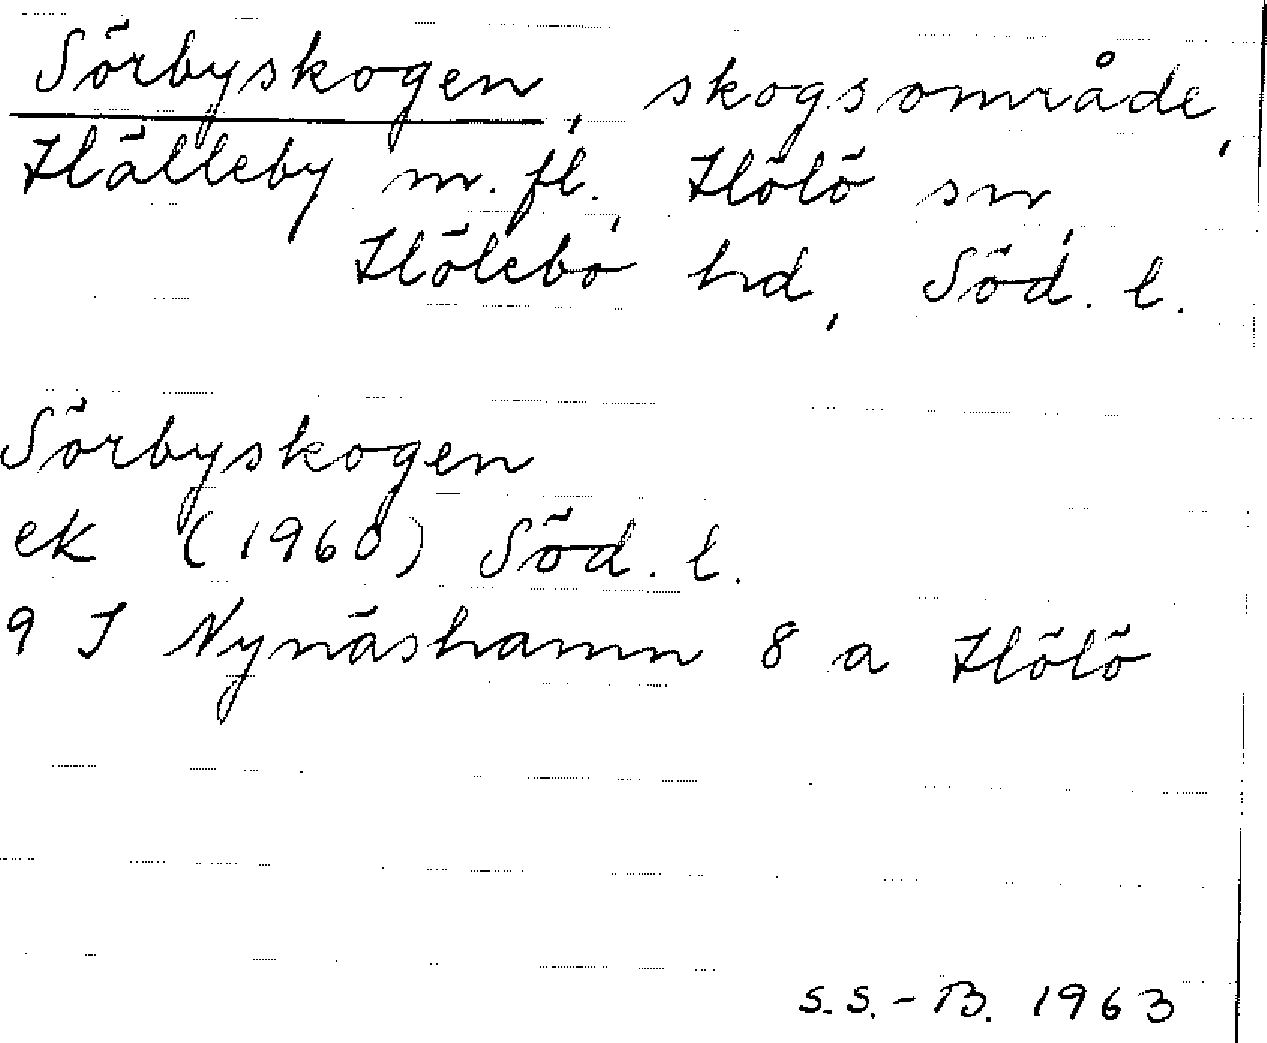 Sörbyskogen, skogsområde,
Hälleby m. fl., Hölö sn,
Hölebo hd, Söd. l.
Sörbyskogen
ek (1960) Söd. l.
9 I Nynäshamn 8 a Hölö
S.S.-B. 1963